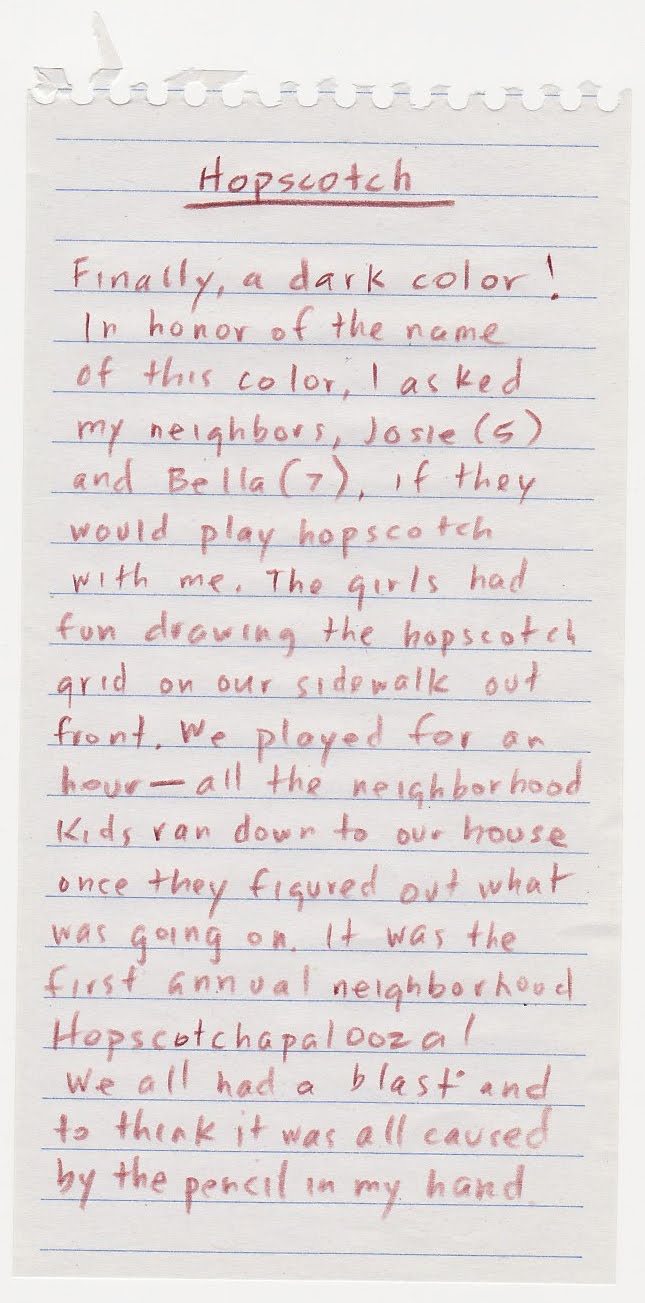 Hopscotch
Finally, a dark color!
In honor of the name
of this color, I asked
my neighbors, Josie (5)
and Bella (7), if they
would play hopscotch
with me. The girls had
fun drawing the hopscotch
grid on our sidewalk out
front. We played for an
hour—all the neighborhood
Kids ran down to our house
once they figured out what
was going on. It was the
first annual neighborhood
Hopscotchapalooza!
We all had a blast and
to think it was all caused
by the pencil in my hand.